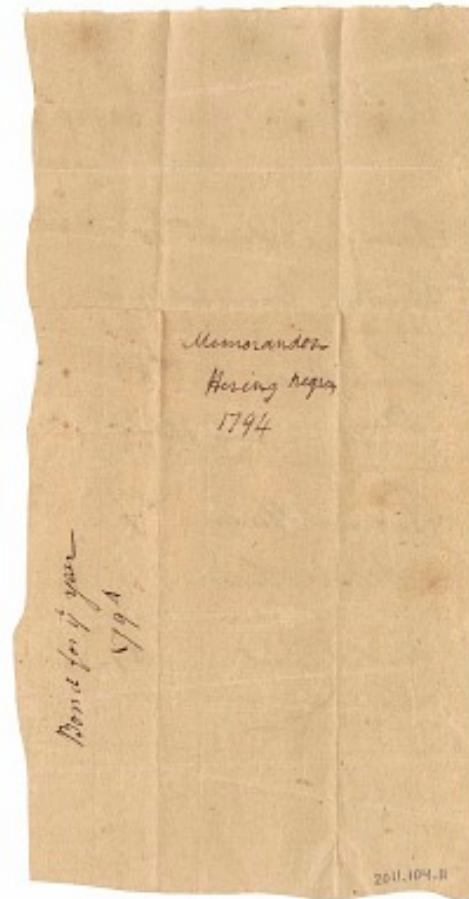 Memorandom
Hiring negroes
1794
Bond for yᵉ year
1794
2011.104.11